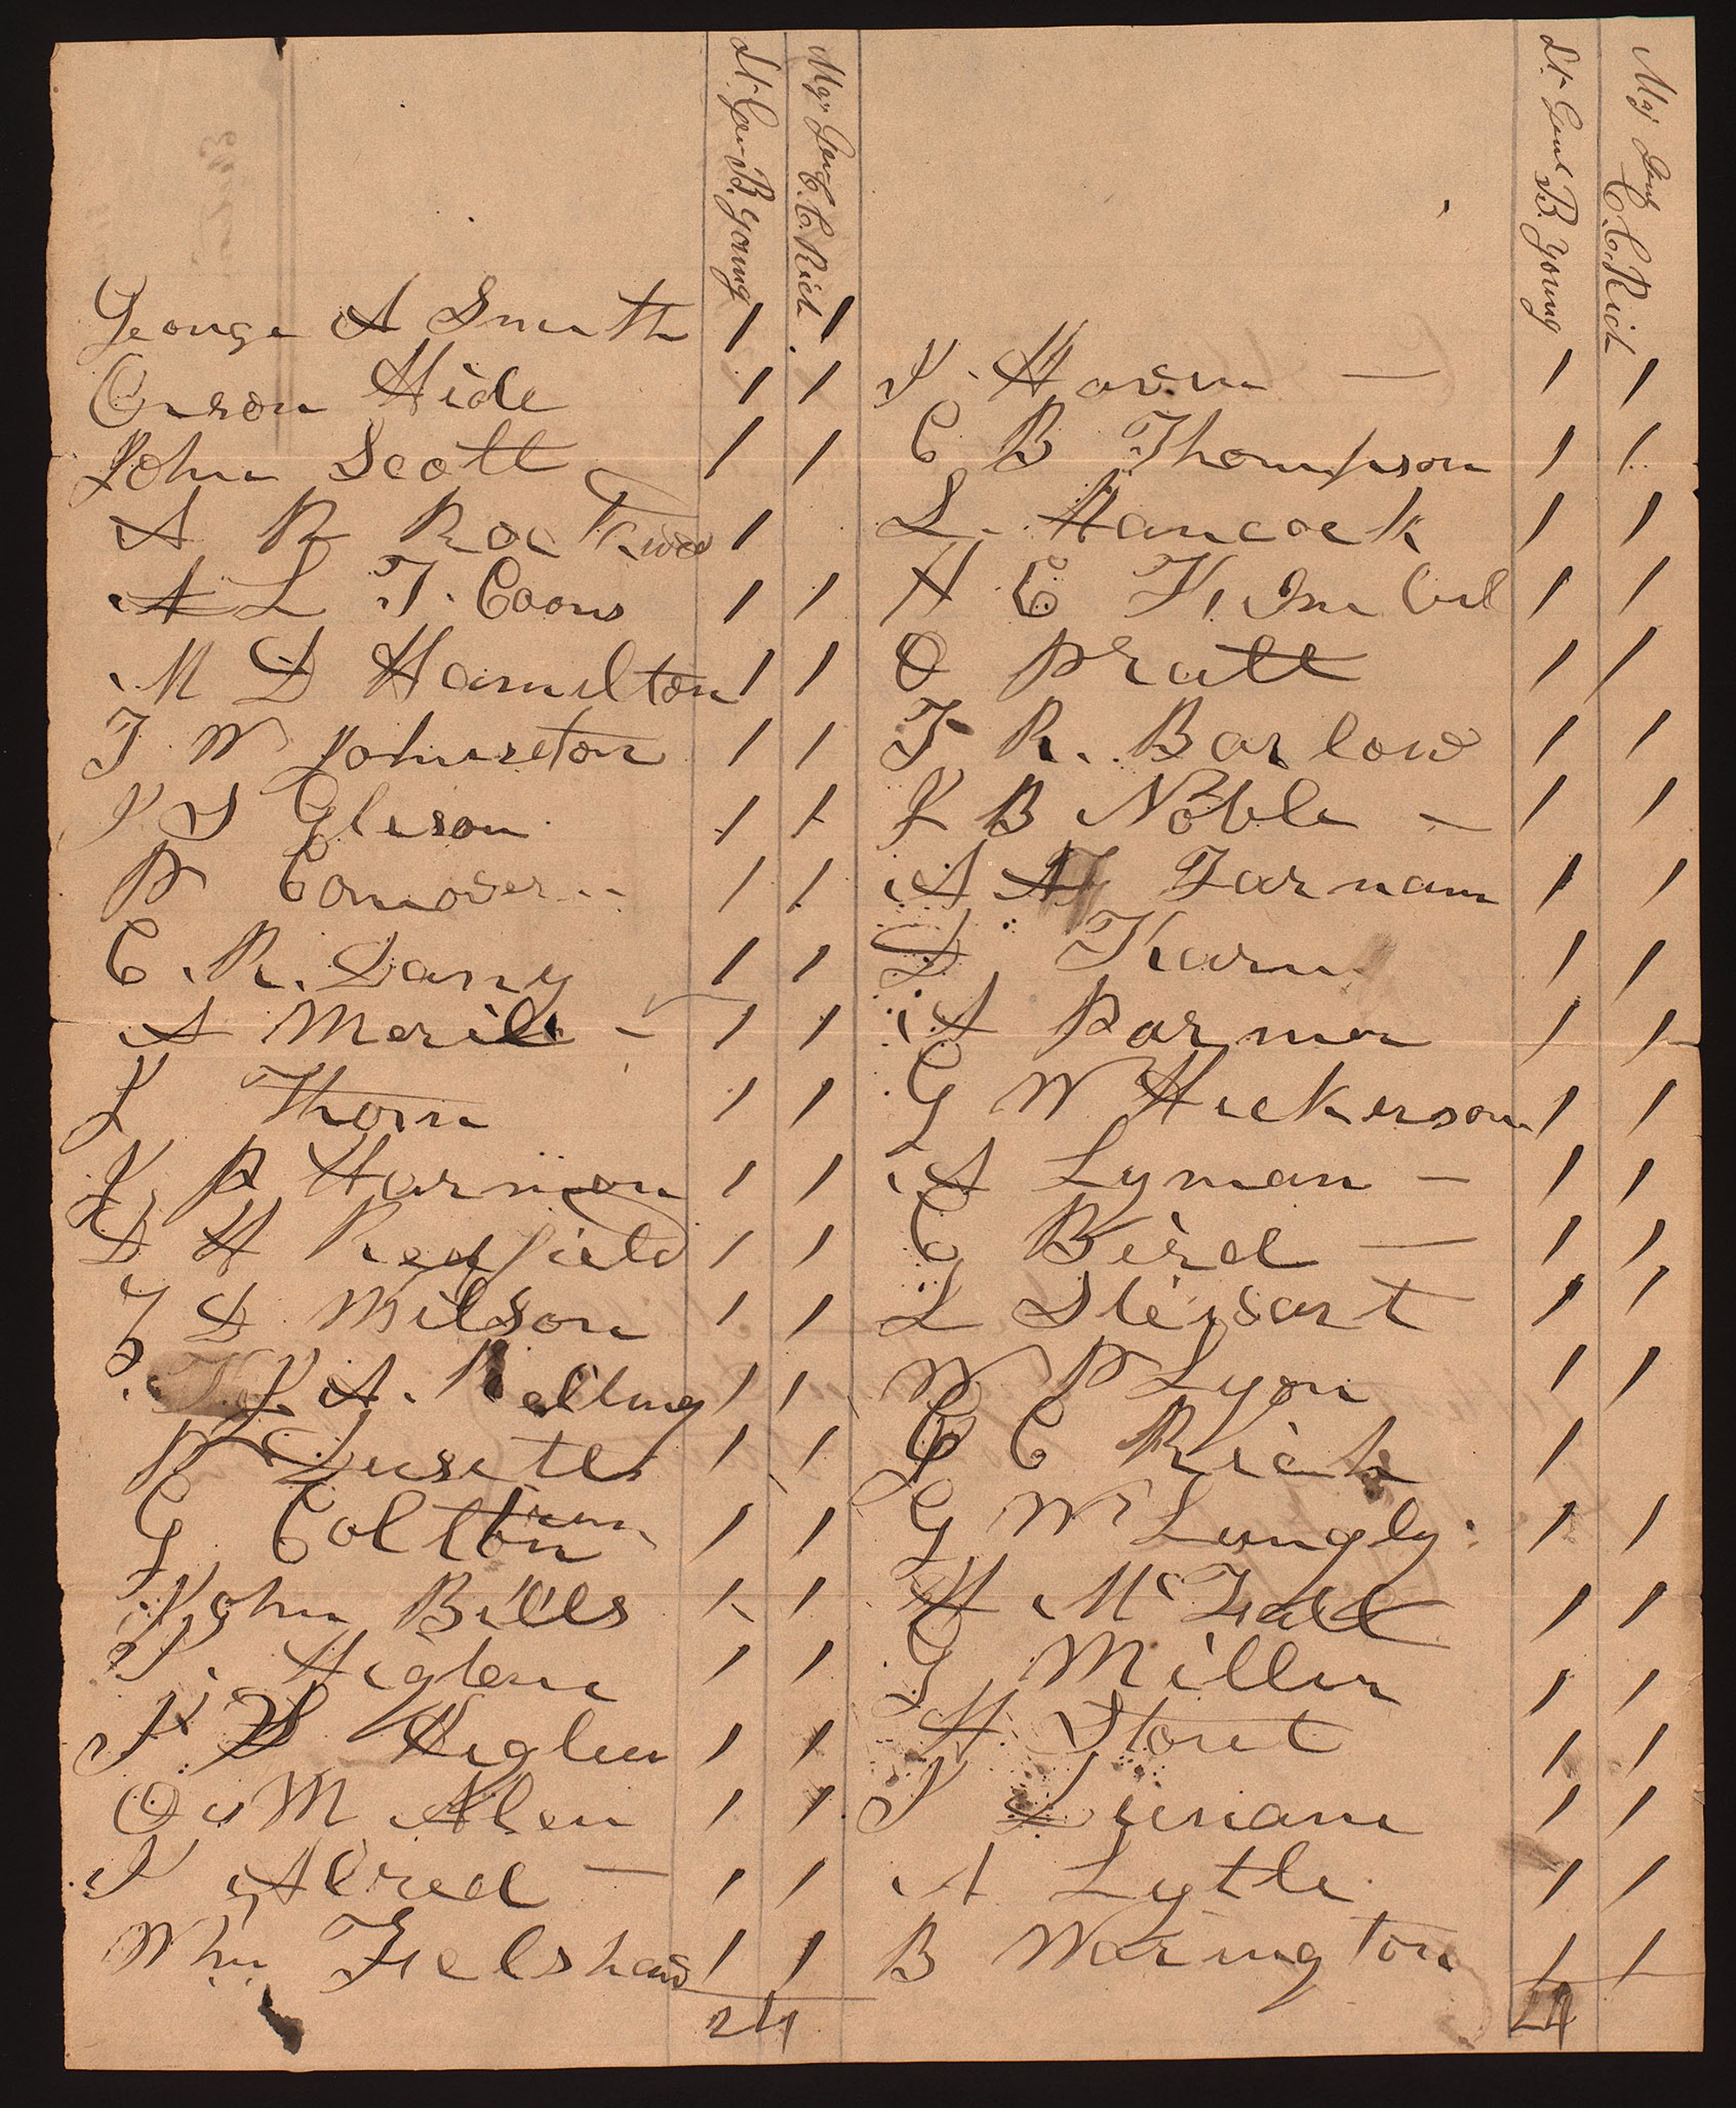 Lt. Gen B. Young
Mgr Gen C. C. Rich
George A Smith 1 1
Orson Hide 1 1
John Scott 1 1
A P Rockwood 1
L T Coons 1 1
M D Hamilton 1 1
T W Johnseton 1 1
J S Gleson 1 1
P Conover 1 1
C. R. Dany 1 1
A Merill - 1 1
J Thorn 1 1
J P Harmon 1 1
D H Redfield 1 1
Z D Wilson 1 1
J A. Kelting 1 1
P Dusette 1 1
G Coltrin 1 1
John Bills 1 1
J. Higben 1 1
J S Higben 1 1
O M Alen 1 1
J Alred — 1 1
Wm Felshaw 1 1
24
Lt. Genl B. Young
Maj Genl C. C. Rich
J. Haven — 1 1
C B Thompson 1 1
L. Hancock 1 1
H C Kimbul 1 1
O Pratt 1 1
I R. Barlow 1 1
J B Noble - 1 1
A Farnam 1 1
D Karn 1 1
A Parmer 1 1
G W Hickerson 1 1
A Lyman - 1 1
C Bird — 1 1
L Stewart 1 1
W P Lyon 1 1
C C Rich 1
G W Lungly 1 1
H McFall 1 1
G Miller 1 1
H Stout 1 1
J Duriam 1 1
A Lytle 1 1
B Warington 1 1
24